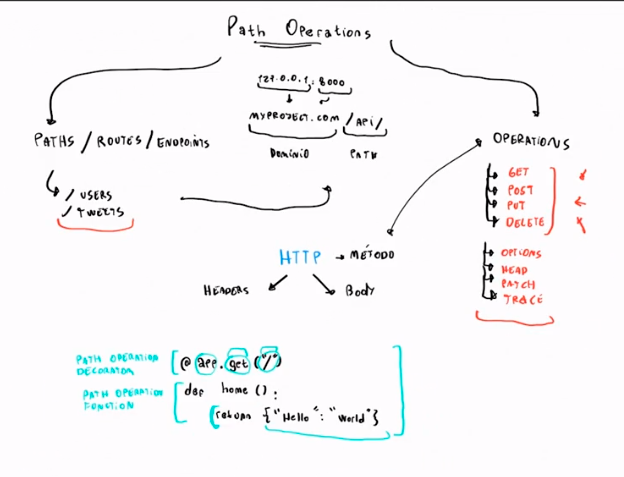 Path Operations
127.0.0.1:8000
MYPROJECT.COM/API/
DOMINIO PATH
PATHS/ROUTES/ENDPOINTS
/USERS
/TWEETS
OPERATIONS
GET
POST
PUT
DELETE
OPTIONS
HEAD
PATCH
TRACE
HTTP → MÉTODO
HEADERS
Body
PATH OPERATION
DECORATOR
@app.get("/")
PATH OPERATION
FUNCTION
def home():
return {"Hello": "World"}